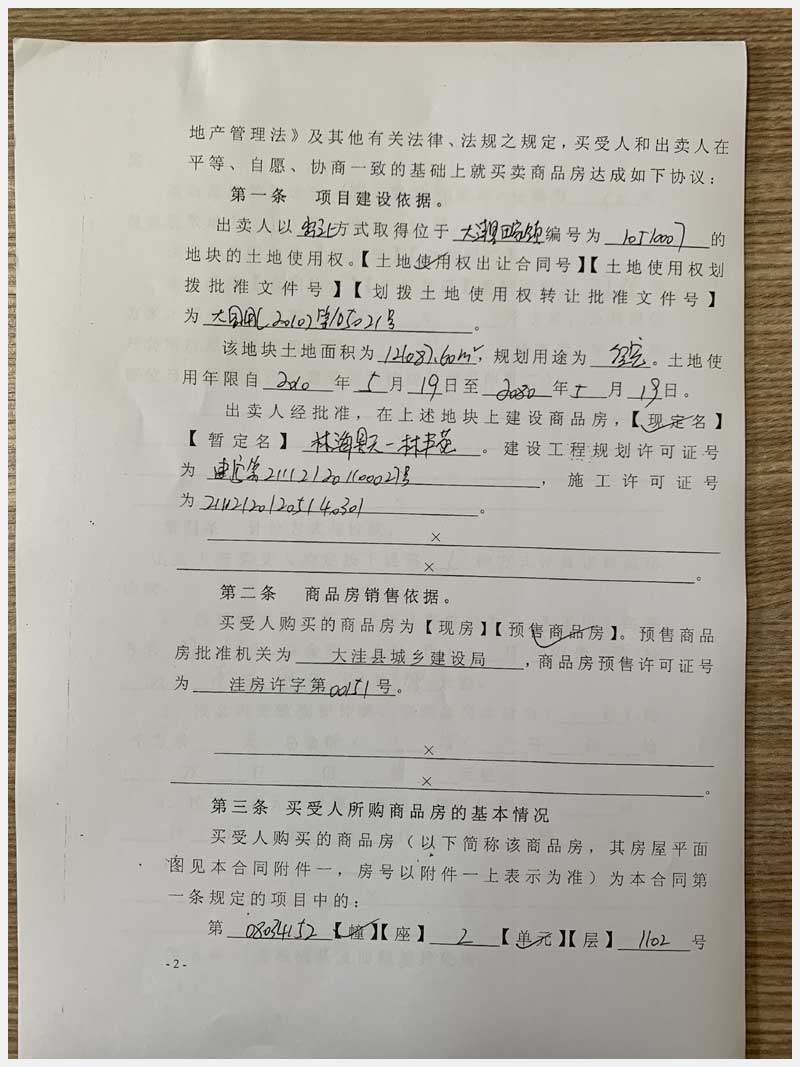 地产管理法》及其他有关法律、法规之规定，买受人和出卖人在
平等、自愿、协商一致的基础上就买卖商品房达成如下协议：
第一条 项目建设依据。
出卖人以 出让 方式取得位于 大洼县田家镇 编号为 1051007 的
地块的土地使用权。【土地使用权出让合同号】【土地使用权划
拨批准文件号】【划拨土地使用权转让批准文件号】
为 大国用（2010）第105021号 。
该地块土地面积为 121087.60m²，规划用途为 住宅。土地使
用年限自 2010 年 5 月 19 日至 2080 年 5 月 19 日。
出卖人经批准，在上述地块上建设商品房，【现定名】
【暂定名】 。建设工程规划许可证号
为 建字第211121201100027号 ，施工许可证号
为 211121201205140301 。
×
× 。
第二条 商品房销售依据。
买受人购买的商品房为【现房】【预售商品房】。预售商品
房批准机关为 大洼县城乡建设局 ，商品房预售许可证号
为 洼房许字第00151号。
×
× 。
第三条 买受人所购商品房的基本情况
买受人购买的商品房（以下简称该商品房，其房屋平面
图见本合同附件一，房号以附件一上表示为准）为本合同第
一条规定的项目中的：
第 08034152 【幢】【座】 2 【单元】【层】 1102 号
- 2 -